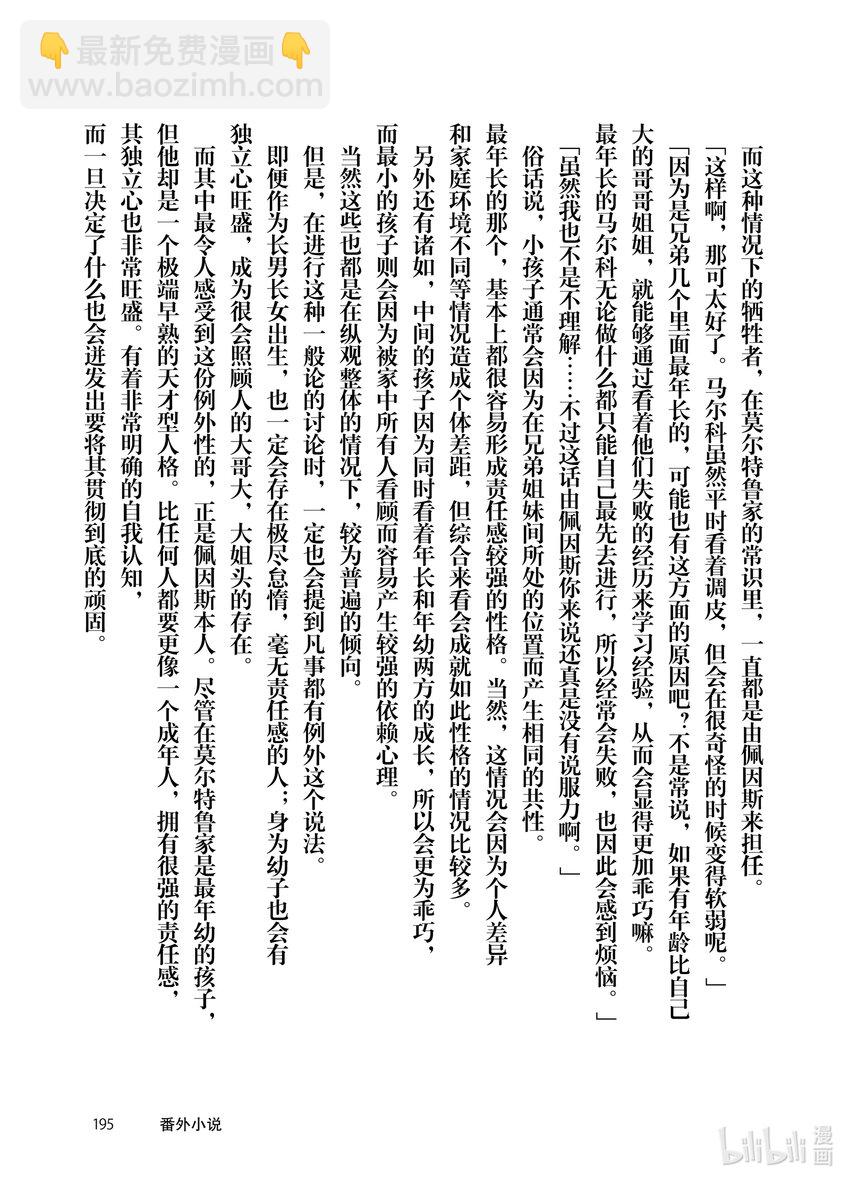 👇最新免费漫画👇
www.baozimh.com
而这种情况下的牺牲者，在莫尔特鲁家的常识里，一直都是由佩因斯来担任。
「这样啊，那可太好了。马尔科虽然平时看着调皮，但会在很奇怪的时候变得软弱呢。」
「因为是兄弟几个里面最年长的，可能也有这方面的原因吧？不是常说，如果有年龄比自己
大的哥哥姐姐，就能够通过看着他们失败的经历来学习经验，从而会显得更加乖巧嘛。
最年长的马尔科无论做什么都只能自己最先去进行，所以经常会失败，也因此会感到烦恼。」
「虽然我也不是不理解……不过这话由佩因斯你来说还真是没有说服力啊。」
俗话说，小孩子通常会因为在兄弟姐妹间所处的位置而产生相同的共性。
最年长的那个，基本上都很容易形成责任感较强的性格。当然，这情况会因为个人差异
和家庭环境不同等情况造成个体差距，但综合来看会成就如此性格的情况比较多。
另外还有诸如，中间的孩子因为同时看着年长和年幼两方的成长，所以会更为乖巧，
而最小的孩子则会因为被家中所有人看顾而容易产生较强的依赖心理。
当然这些也都是在纵观整体的情况下，较为普遍的倾向。
但是，在进行这种一般论的讨论时，一定也会提到凡事都有例外这个说法。
即便作为长男长女出生，也一定会存在极尽怠惰，毫无责任感的人；身为幼子也会有
独立心旺盛，成为很会照顾人的大哥大，大姐头的存在。
而其中最令人感受到这份例外性的，正是佩因斯本人。尽管在莫尔特鲁家是最年幼的孩子，
但他却是一个极端早熟的天才型人格。比任何人都要更像一个成年人，拥有很强的责任感，
其独立心也非常旺盛。有着非常明确的自我认知，
而一旦决定了什么也会迸发出要将其贯彻到底的顽固。
195 番外小说
bilibili 漫画